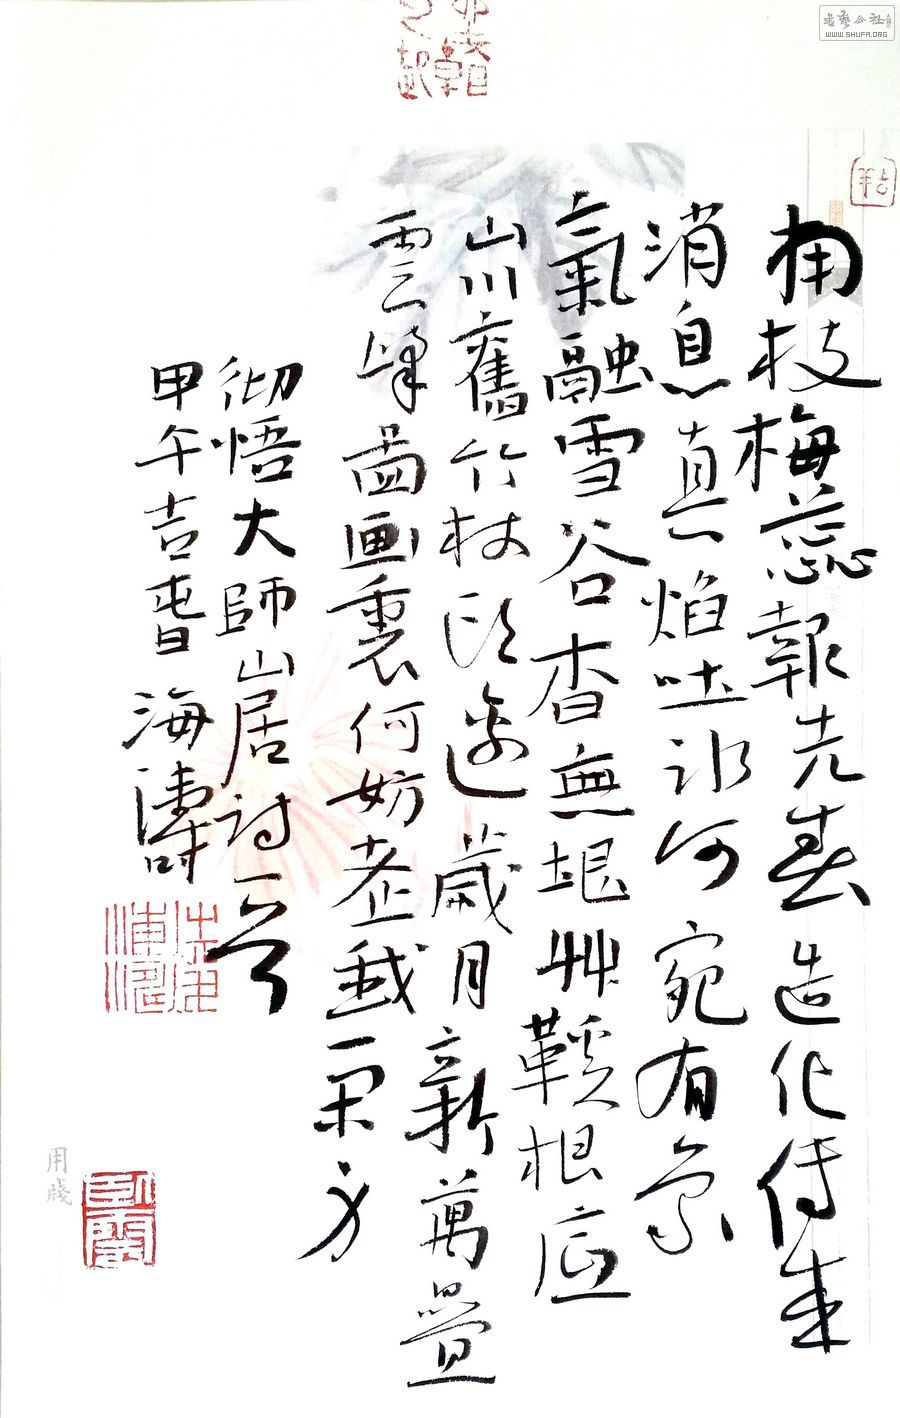 南枝梅蕊報先春造化傳來
消息真焰吐冰河宛有象
氣融雪谷杳無垠艸鞵根底
山川舊竹杖頭邊歲月新萬疊
雲峰圖畫裏何妨老我一閑身
彻悟大師山居詩一首
甲午吉春 海濤
用牋
書藝公社
WWW.SHUFA.ORG